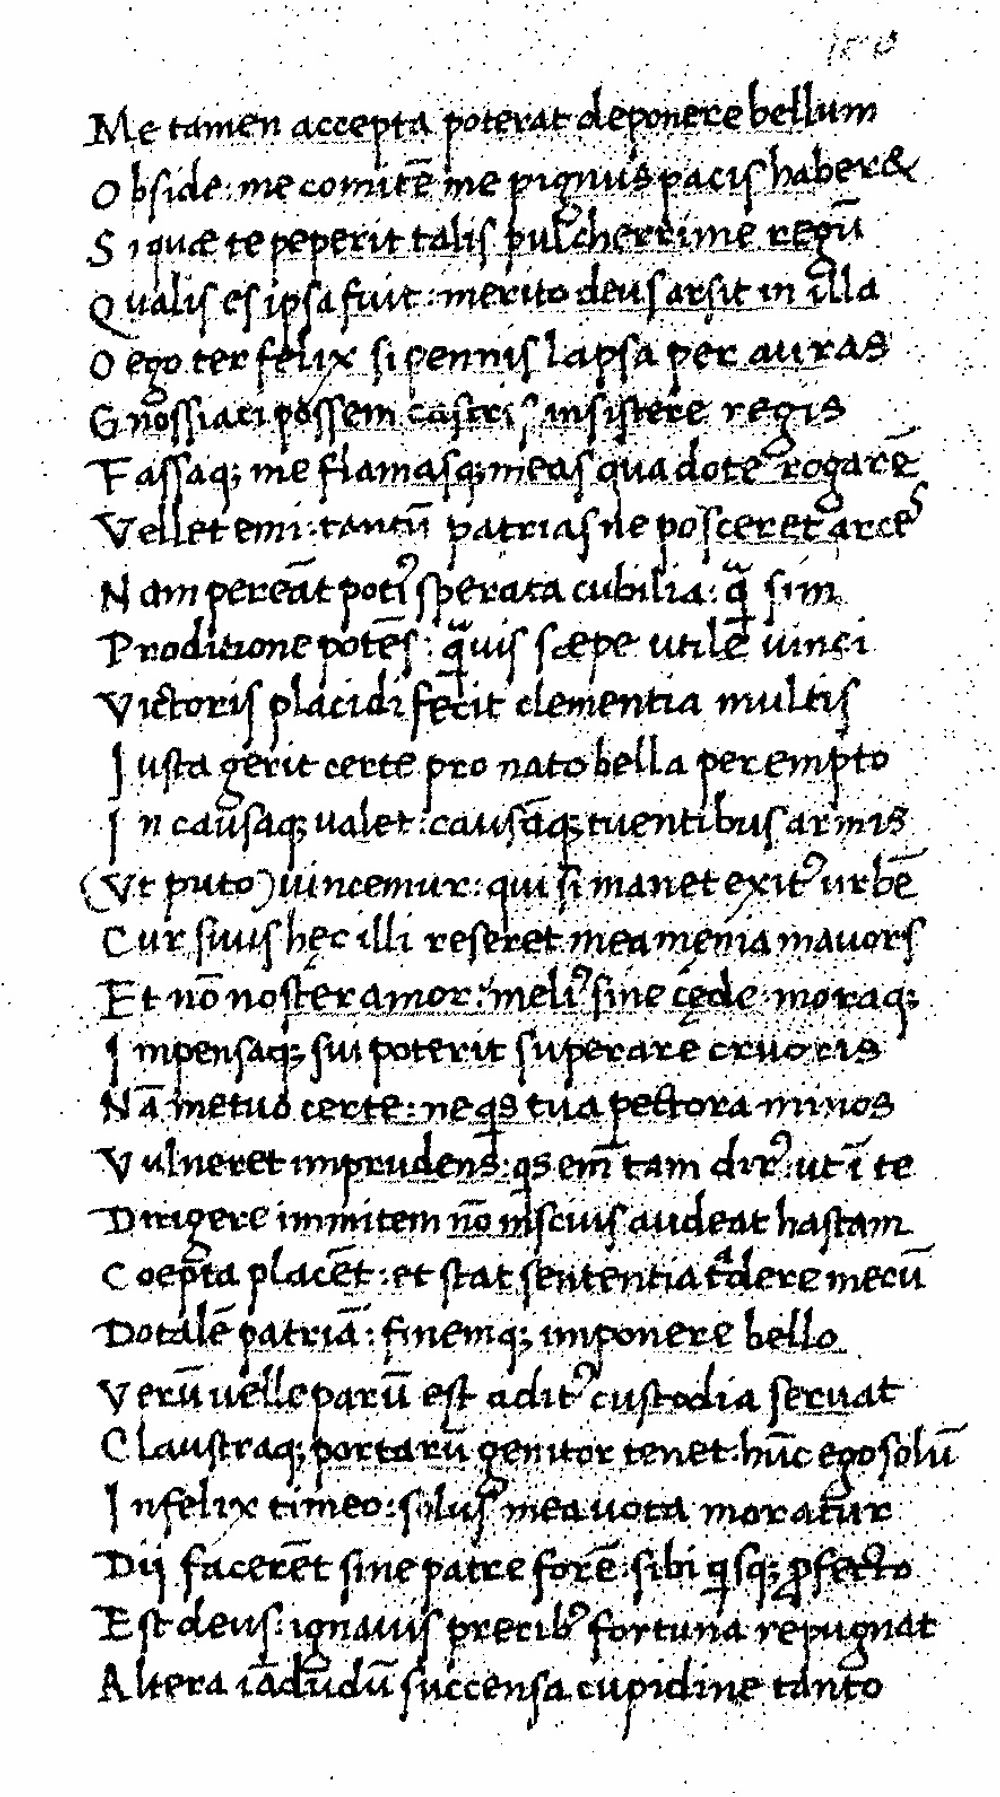 Me tamen accepta poterat deponere bellum
Obside: me comitē me pignus pacis haber&
Si quæ te peperit talis pulcherrime regū
Qualis es ipsa fuit: merito deus arsit in illa
O ego ter felix si pennis lapsa per auras
Gnossiaci possem castris insistere regis
Fassaq; me flamasq; meas qua dote rogarē
Vellet emi: tantū patrias ne posceret arces
Nam pereāt potiꝰ sperata cubilia: q̄ sim
Proditione potēs: q̄uis sæpe utilē uinci
Victoris placidi fecit clementia multis
Iusta gerit certe pro nato bella perempto
In causaq; ualet: causāq; tuentibus armis
(Vt puto) uincemur: qui si manet exitꝰ urbē
Cur suus hęc illi reseret mea męnia mauors
Et nō noster amor: meliꝰ sine cęde moraq;
Impensaq; sui poterit superare cruoris
Nā metuo certe: ne qs tua pectora minos
Vulneret imprudens: qs em̄ tam dirꝰ: ut ī te
Dirigere immitem nō īscius audeat hastam
Coepta placēt: et stat sententia tᵃdere mecū
Dotalē patriā: finemq; imponere bello
Verū uelle parū est aditꝰ custodia seruat
Claustraq; portarū genitor tenet: hūc ego solū
Infelix timeo: solus mea uota moratur
Dii facerēt sine patre forē: sibi qsq; ꝓfecto
Est deus: ignauis precibꝰ fortuna repugnat
Altera iādudū succensa cupidine tanto